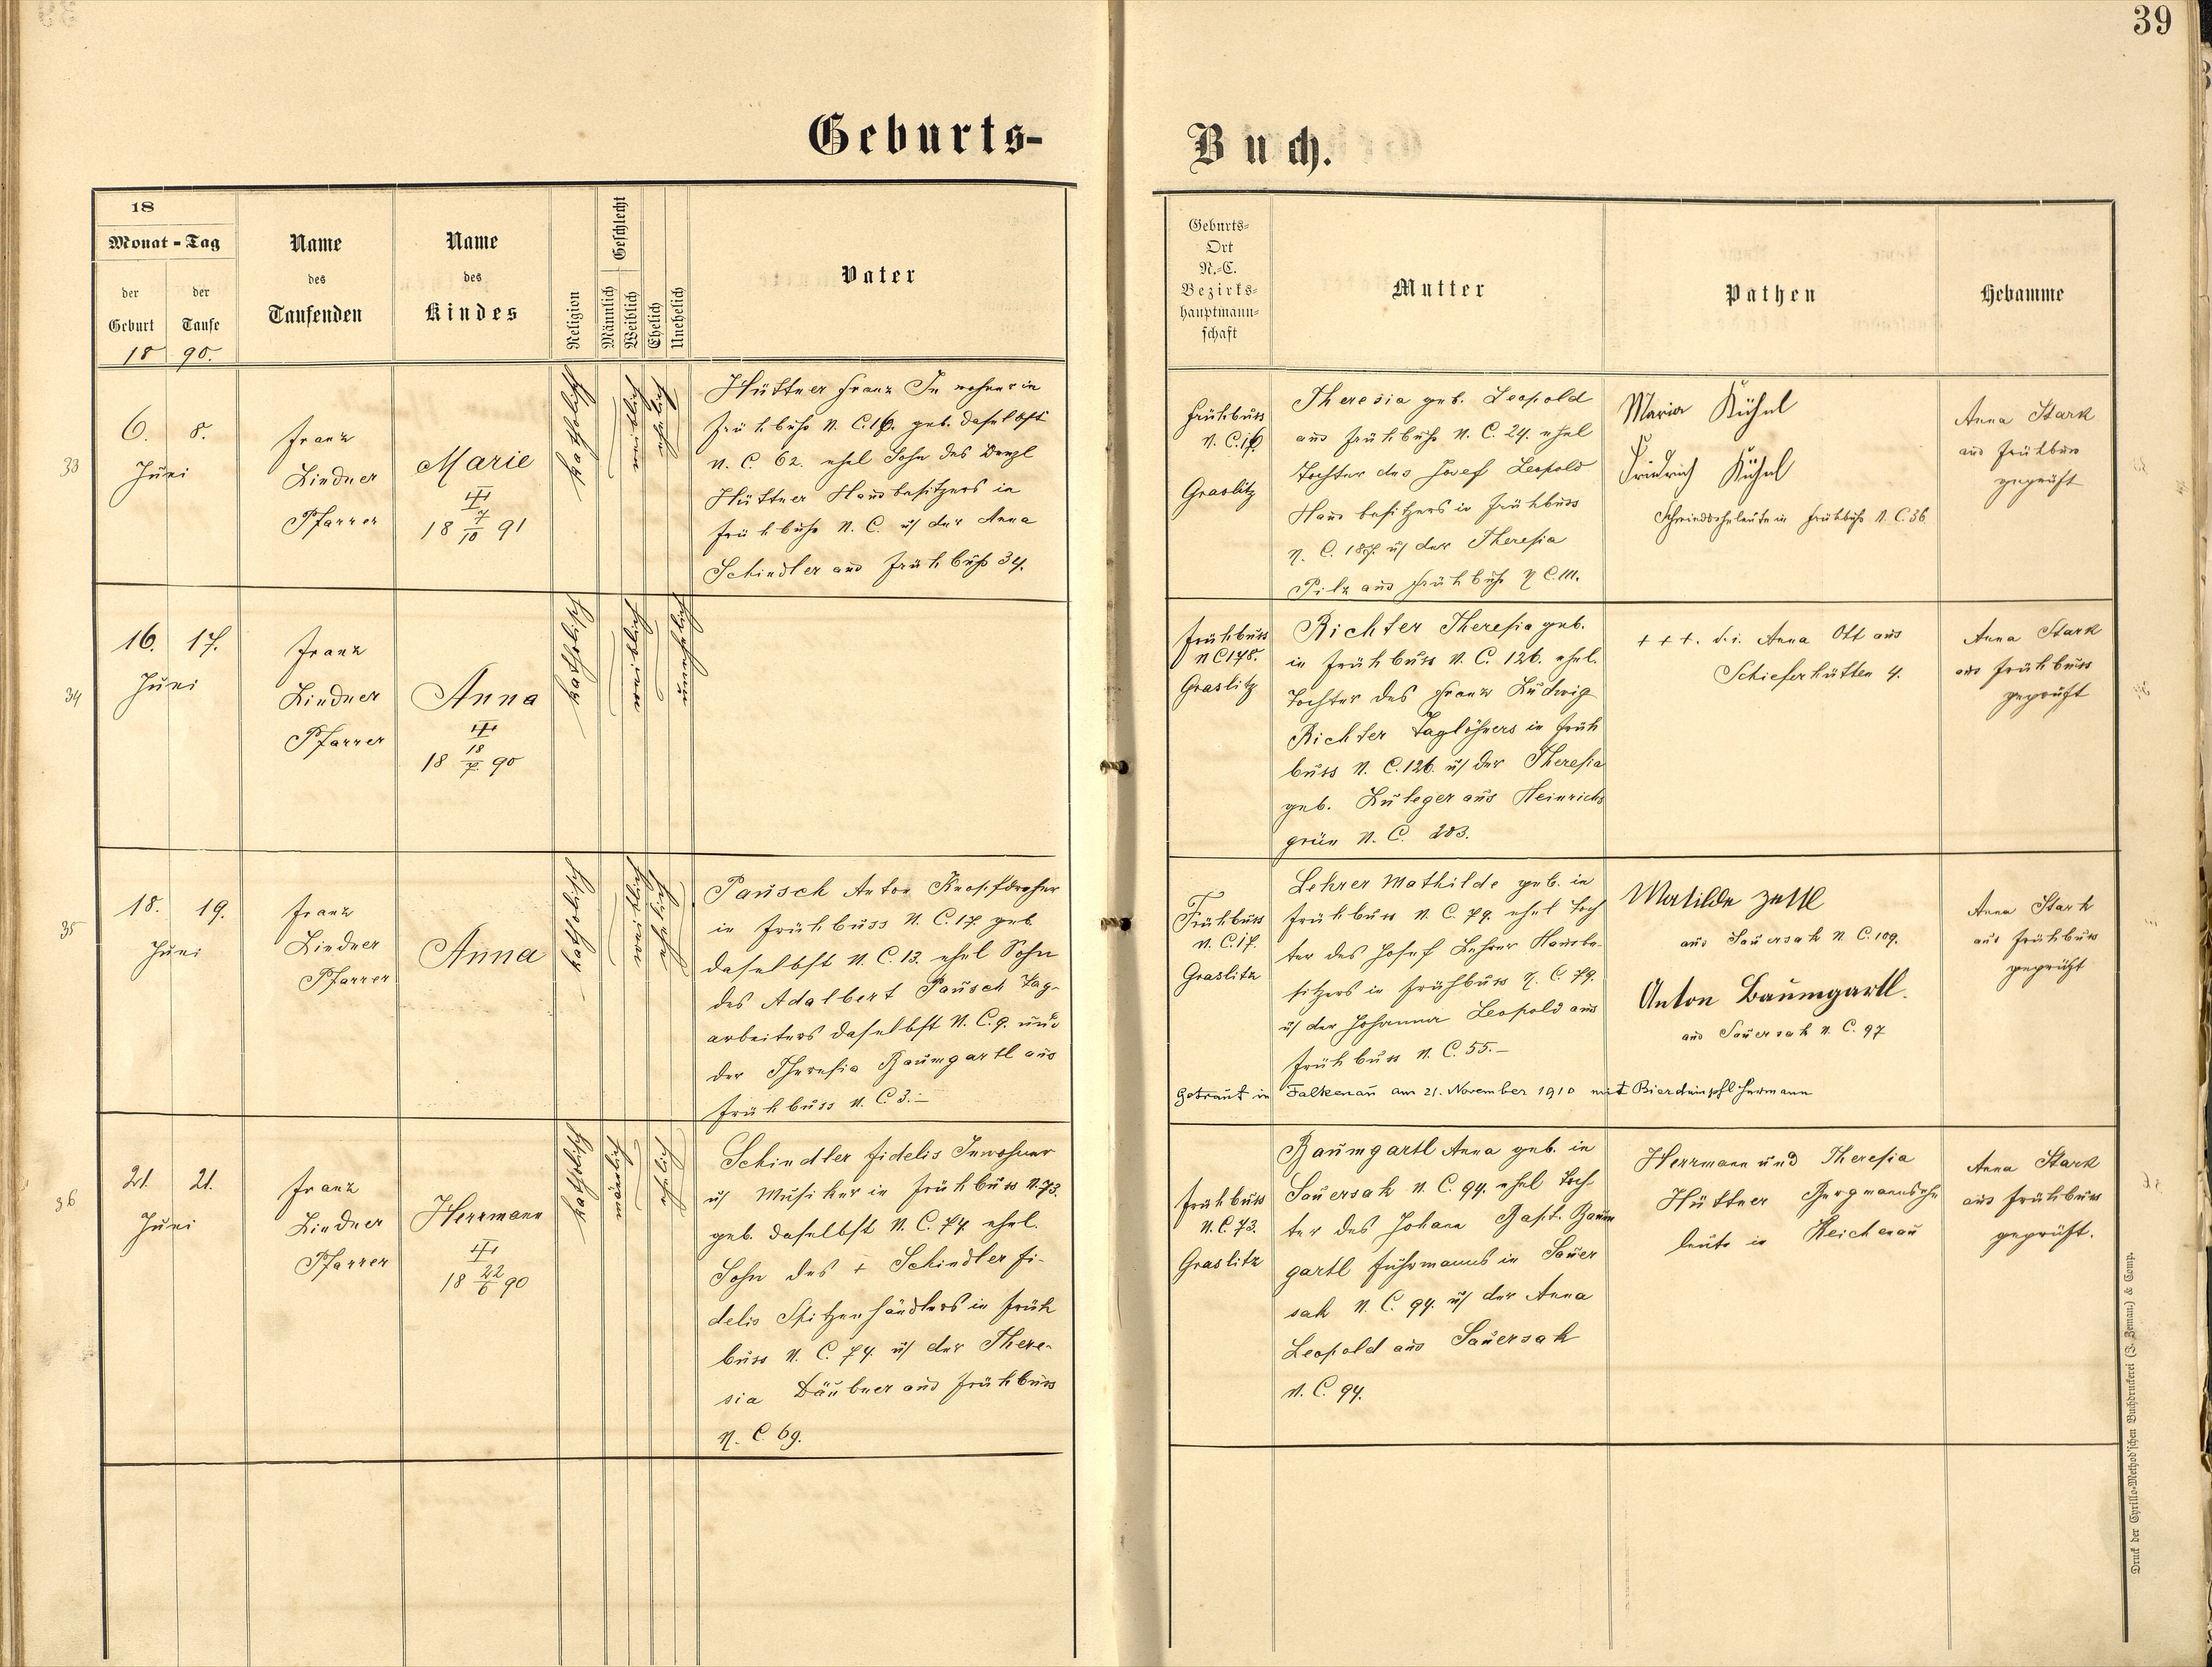 39
Geburts-
Buch.
18
Monat-Tag
der Geburt
der Taufe
18 90.
Name des Taufenden
Name des Kindes
Religion
Geschlecht
Männlich
Weiblich
Ehelich
Unehelich
Vater
Geburts-
Ort
N.-C.
Bezirks-
hauptmann-
schaft
Mutter
Pathen
Hebamme
33
6. 8.
Juni
Franz
Lindner
Pfarrer
Marie
18 7/10 91
katholisch
weiblich
ehelich
Hüttner Franz Inwohner in
Frühbuß N. C. 16. geb. daselbst
N. C. 62. ehel Sohn des Wenzl
Hüttner Hausbesitzers in
Frühbuß N. C. u/ der Anna
Schindler aus Frühbuß 34.
Frühbuss
N. C. 16.
Graslitz
Theresia geb. Leopold
aus Frühbuß N. C. 24. ehel
Tochter des Josef Leopold
Hausbesitzers in Frühbuss
N. C. u/ der Theresia
Pilz aus Frühbuß N C. 111.
Maria Kühnl
Friedrich Kühnl
Schmiedseheleute in Frühbuß N. C. 36
Anna Stark
aus Frühbuss
geprüft
34
16. 17.
Juni
Franz
Lindner
Pfarrer
Anna
18 18/7. 90
katholisch
weiblich
unehelich
Frühbuss
N C 178.
Graslitz
Richter Theresia geb.
in Frühbuss N. C. 126. ehel.
Tochter des Franz Ludwig
Richter Taglöhners in Früh
buss N. C. 126. u/ der Theresia
geb. aus Heinrichs
grün N. C. 203.
+++. d. i. Anna Ott aus
Schieferhütten 4.
Anna Stark
aus Frühbuss
geprüft
35
18. 19.
Juni
Franz
Lindner
Pfarrer
Anna
katholisch
weiblich
ehelich
Pausch Anton Knopfdreher
in Frühbuss N. C. 17 geb
daselbst N. C. 13. ehel Sohn
des Adalbert Pausch Tag-
arbeiters daselbst N. C. 9. und
der Theresia Baumgartl aus
Frühbuss N. C 3.-
Frühbuss
N. C. 17.
Graslitz
Lehrer Mathilde geb. in
Frühbuss N. C. 79. ehel Toch
ter des Josef Lehrer Hausbe-
sitzers in Frühbuss N. C. 79.
u/ der Johanna Leopold aus
Frühbuss N. C. 55.-
Getraut in Falkenau am 21. November 1910 mit Bierdimpfl Hermann
Matilde Zettl
aus Sauersak N. C. 109.
Anton Baumgartl.
aus Sauersak N. C. 97
Anna Stark
aus Frühbuss
geprüft
36
21. 21.
Juni
Franz
Lindner
Pfarrer
Herrmann
18 22/6 90
katholisch
männlich
ehelich
Schindler Fidelis Inwohner
u/ Musiker in Frühbuss N. 73.
geb. daselbst N. C. 74 ehel.
Sohn des + Schindler Fi-
delis Spitzenhändlers in Früh
buss N. C. 74. u/ der There-
sia Däubner aus Frühbuss
N. C. 69.
Frühbuss
N. C. 73.
Graslitz
Baumgartl Anna geb. in
Sauersak N. C. 94. ehel Toch-
ter des Johann Bapt. Baum
gartl Fuhrmanns in Sauer
sak N. C. 94. u/ der Anna
Leopold aus Sauersak
N. C. 94.
Herrmann und Theresia
Hüttner Bergmannsehe
leute in Reichenau
Anna Stark
aus Frühbuss
geprüft.
Druck der Cyrillo-Method'schen Buchdruckerei (J. Zeman) & Comp.